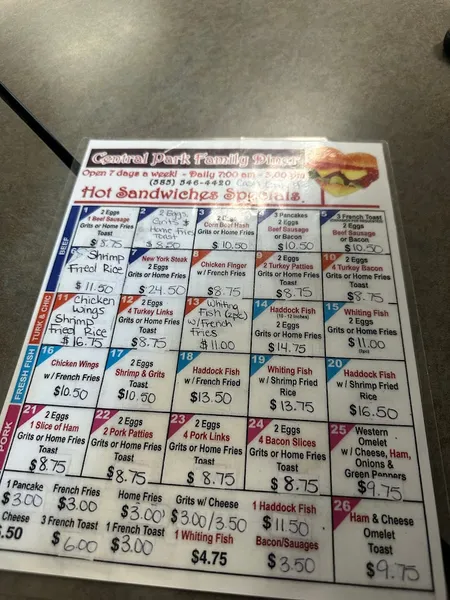 Central Park Family Diner
Open 7 days a week! - Daily 7:00 am - 3:00 pm
(585) 546-4420
Hot Sandwiches Specials
BEEF
1
2 Eggs
1 Beef Sausage
Grits or Home Fries
Toast
$8.75
2
2 Eggs
Grits &
Home Fries
Toast
$8.50
3
2 Eggs
Corn Beef Hash
Grits or Home Fries
$10.50
3 Pancakes
2 Eggs
Beef Sausage
or Bacon
$10.50
5
3 French Toast
2 Eggs
Beef Sausage
or Bacon
$10.50
Shrimp
Fried Rice
$11.50
New York Steak
2 Eggs
Grits or Home Fries
$24.50
Chicken Finger
w/ French Fries
$8.75
9
2 Eggs
2 Turkey Patties
Grits or Home Fries
$8.75
10
2 Eggs
4 Turkey Bacon
Grits or Home Fries
$8.75
TURK & CHIC
11
Chicken
Wings
Shrimp
Fried Rice
$16.75
12
2 Eggs
4 Turkey Links
Grits or Home Fries
Toast
$8.75
13
Whiting
Fish (2pc)
w/French
fries
$11.00
14
Haddock Fish
(10 - 12 inches)
2 Eggs
Grits or Home Fries
$14.75
15
Whiting Fish
2 Eggs
Grits or Home Fries
$11.00
FRESH FISH
16
Chicken Wings
w/ French Fries
$10.50
17
2 Eggs
Shrimp & Grits
Toast
$10.50
18
Haddock Fish
w/ French Fried
$13.50
19
Whiting Fish
w/ Shrimp Fried
Rice
$13.75
20
Haddock Fish
w/ Shrimp Fried
Rice
$16.50
PORK
21
2 Eggs
1 Slice of Ham
Grits or Home Fries
Toast
$8.75
22
2 Eggs
2 Pork Patties
Grits or Home Fries
Toast
$8.75
23
2 Eggs
4 Pork Links
Grits or Home Fries
Toast
$8.75
24
2 Eggs
4 Bacon Slices
Grits or Home Fries
Toast
$8.75
25
Western
Omelet
w/ Cheese, Ham,
Onions &
Green Peppers
$9.75
1 Pancake
$3.00
French Fries
$3.00
Home Fries
$3.00
Grits w/ Cheese
$3.00/3.50
1 Haddock Fish
$11.50
26
Ham & Cheese
Omelet
Toast
$9.75
Cheese
.50
3 French Toast
$6.00
1 French Toast
$3.00
1 Whiting Fish
$4.75
Bacon/Sauages
$3.50